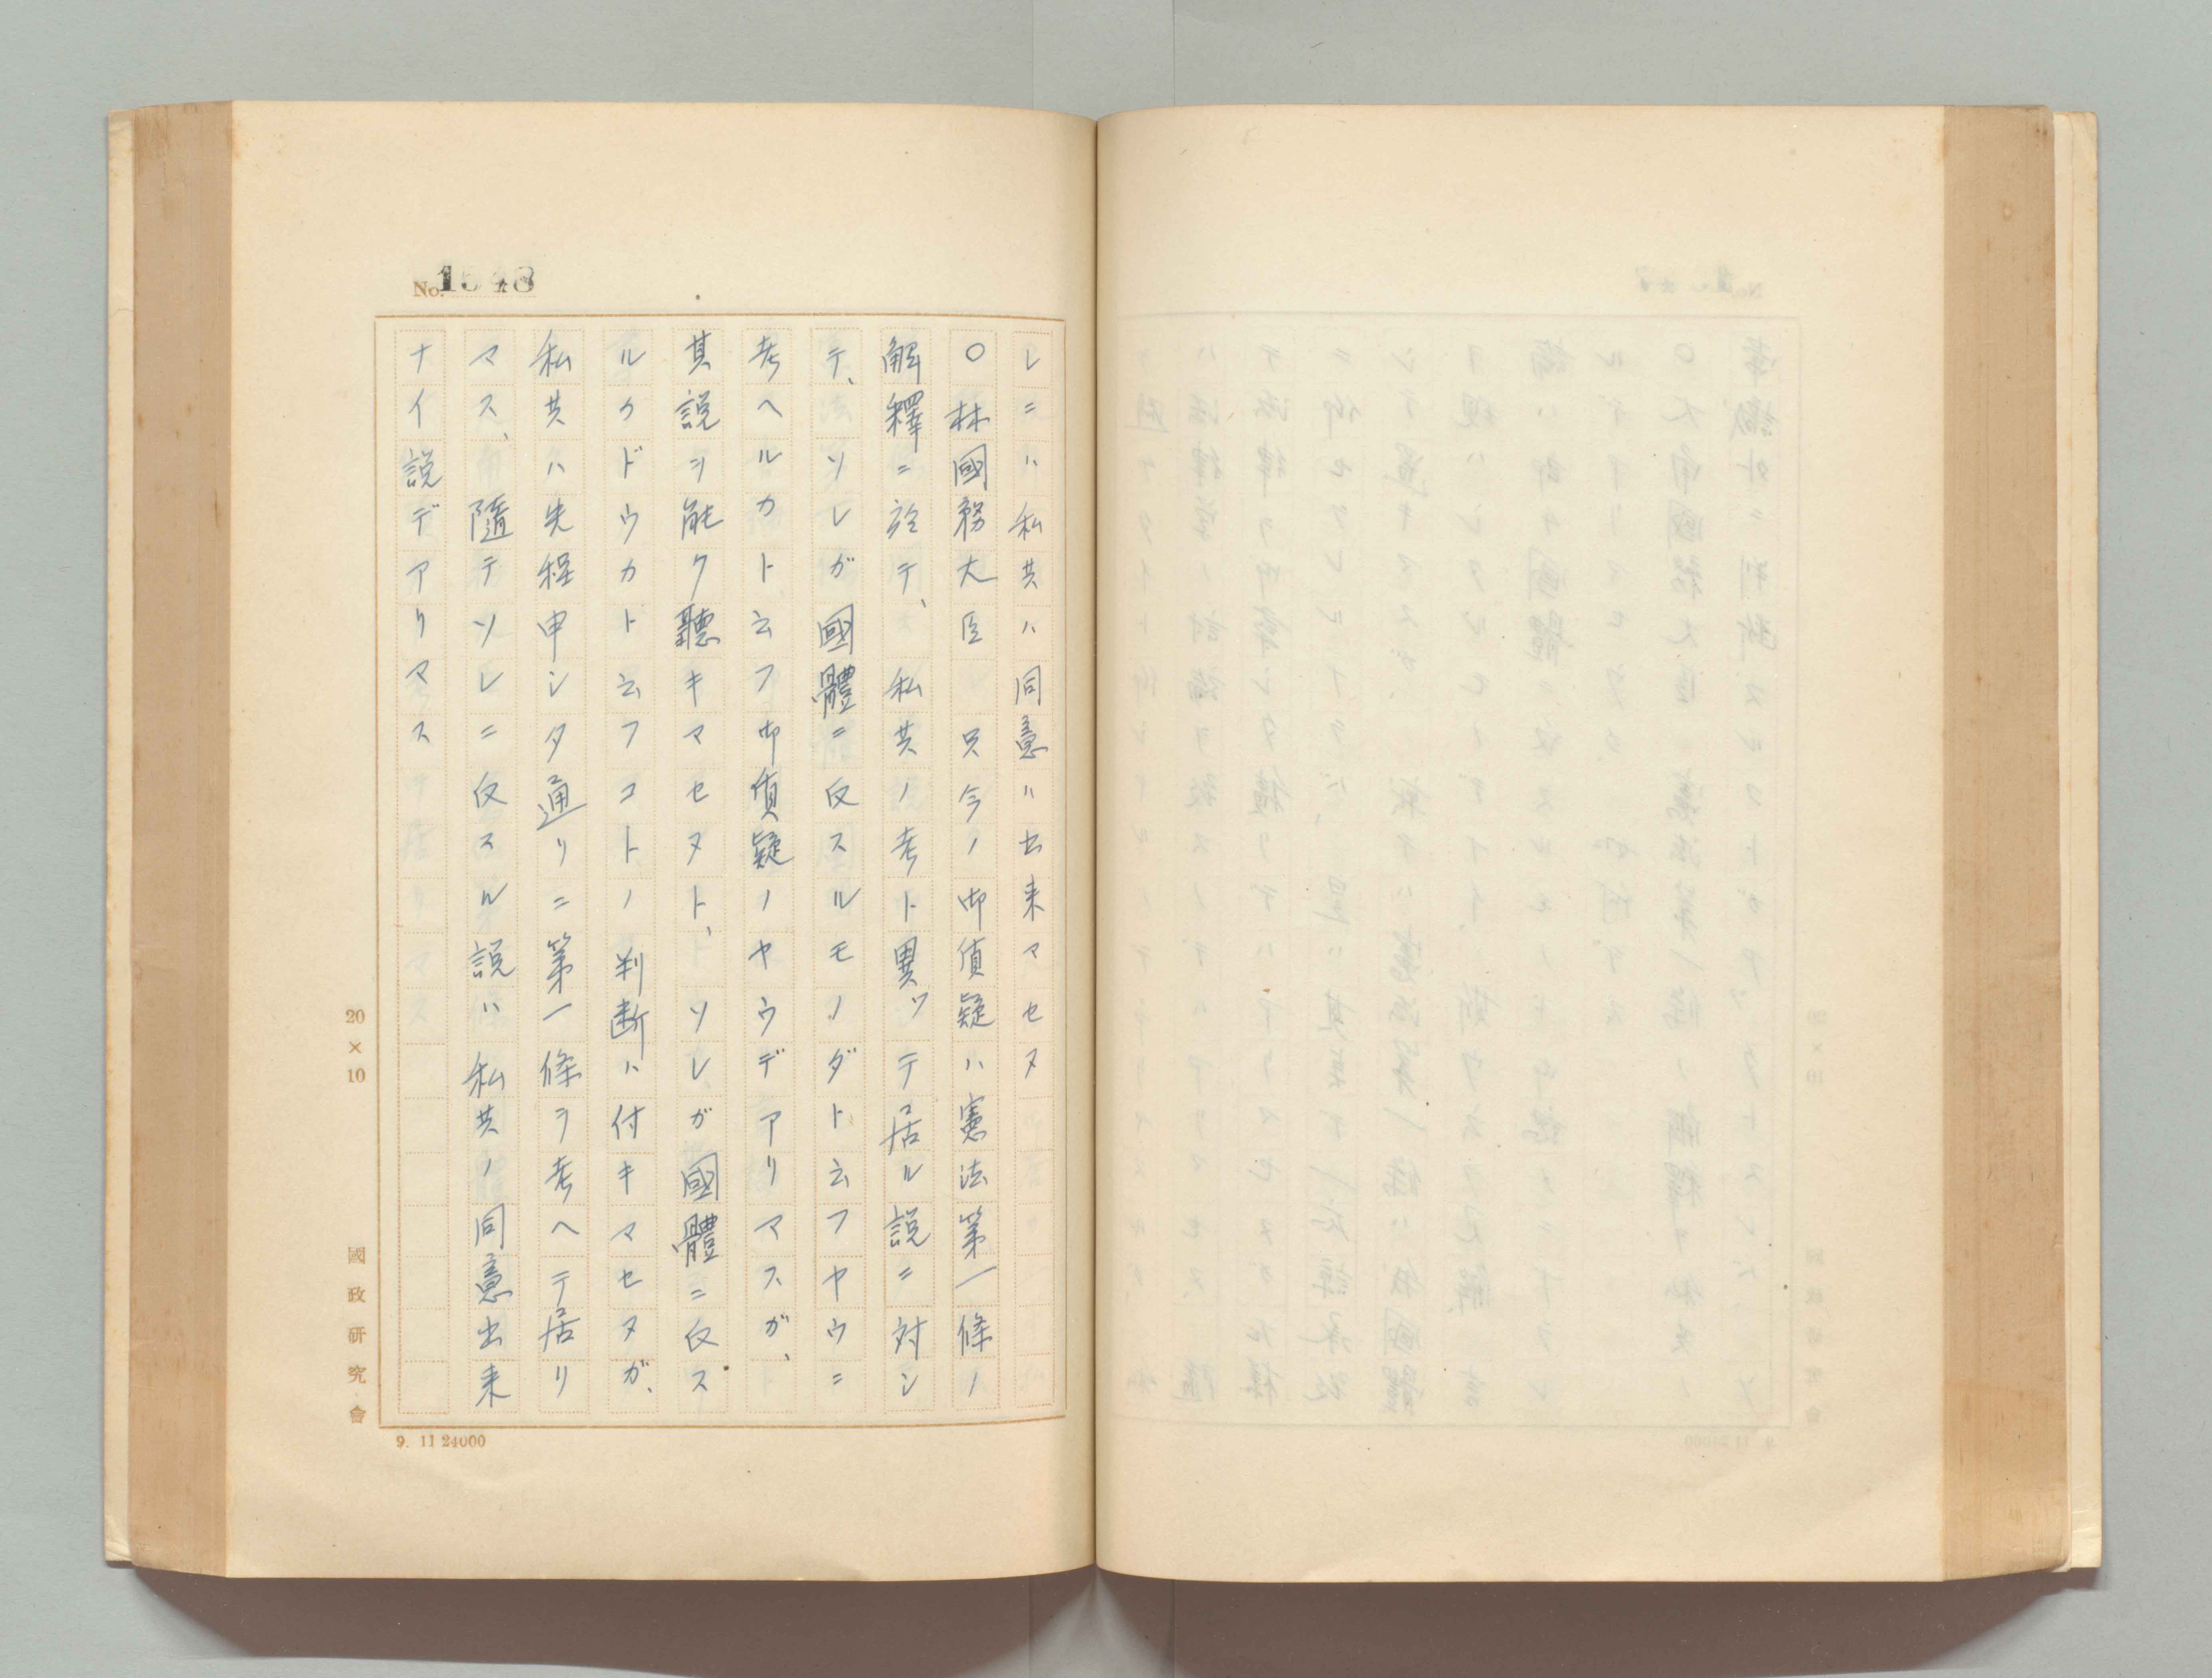 No. 1548
レニハ私共ハ同意ハ出来マセヌ
○林國務大臣　只今ノ御質疑ハ憲法第一條ノ
解釋ニ於テ、私共ノ考ト異ツテ居ル説ニ対シ
テ、ソレガ國體ニ反スルモノダト云フヤウニ
考ヘルカト云フ御質疑ノヤウデアリマスガ、
其説ヲ能ク聽キマセヌト、ソレガ國體ニ反ス
ルカドウカト云フコトノ判断ハ付キマセヌガ、
私共ハ先程申シタ通リニ第一條ヲ考ヘテ居リ
マス、隨テソレニ反スル説ハ私共ノ同意出来
ナイ説デアリマス
20×10
國政研究會
9. 11 24000